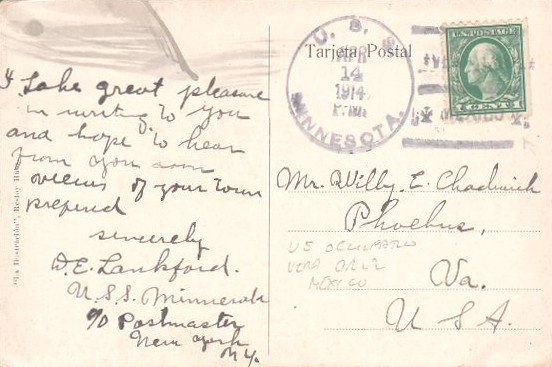 Tarjeta Postal
U. S. S
APR
14
1914
MINNESOTA.
1 CENT 1
I take great pleasure
in writing to you
and hope to hear
from you soon
views of your town
prefered
sincerely
D. E. Lankford.
U.S.S. Minnesota
c/o Postmaster
New York
N.Y.
Mr. Willy. E. Chadwick
Phoebus,
Va.
U S A.
US OCUPATIO
VERA CRUZ
MEXICO
"La Ilustración",